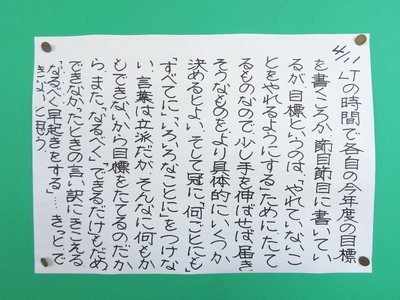 4/11 LTの時間で各自の今年度の目標
を書くころか。節目節目に書いてい
るが目標というのは、「やれていないこ
とをやれるようにする」ためにたて
るものなので、少し手を伸ばせば届き
そうなものをより具体的にいくつか
決めるとよい。そして冠に、「何ごとにも」
「すべてに」「いろいろなことに」をつけな
い。言葉は立派だが、そんなに何もか
もできないから目標をたてるのだか
ら。また、「なるべく」「できるだけ」もだめ
できなかったときの言い訳にきこえる
「なるべく早起きをする」…きっと、で
きないと思う。